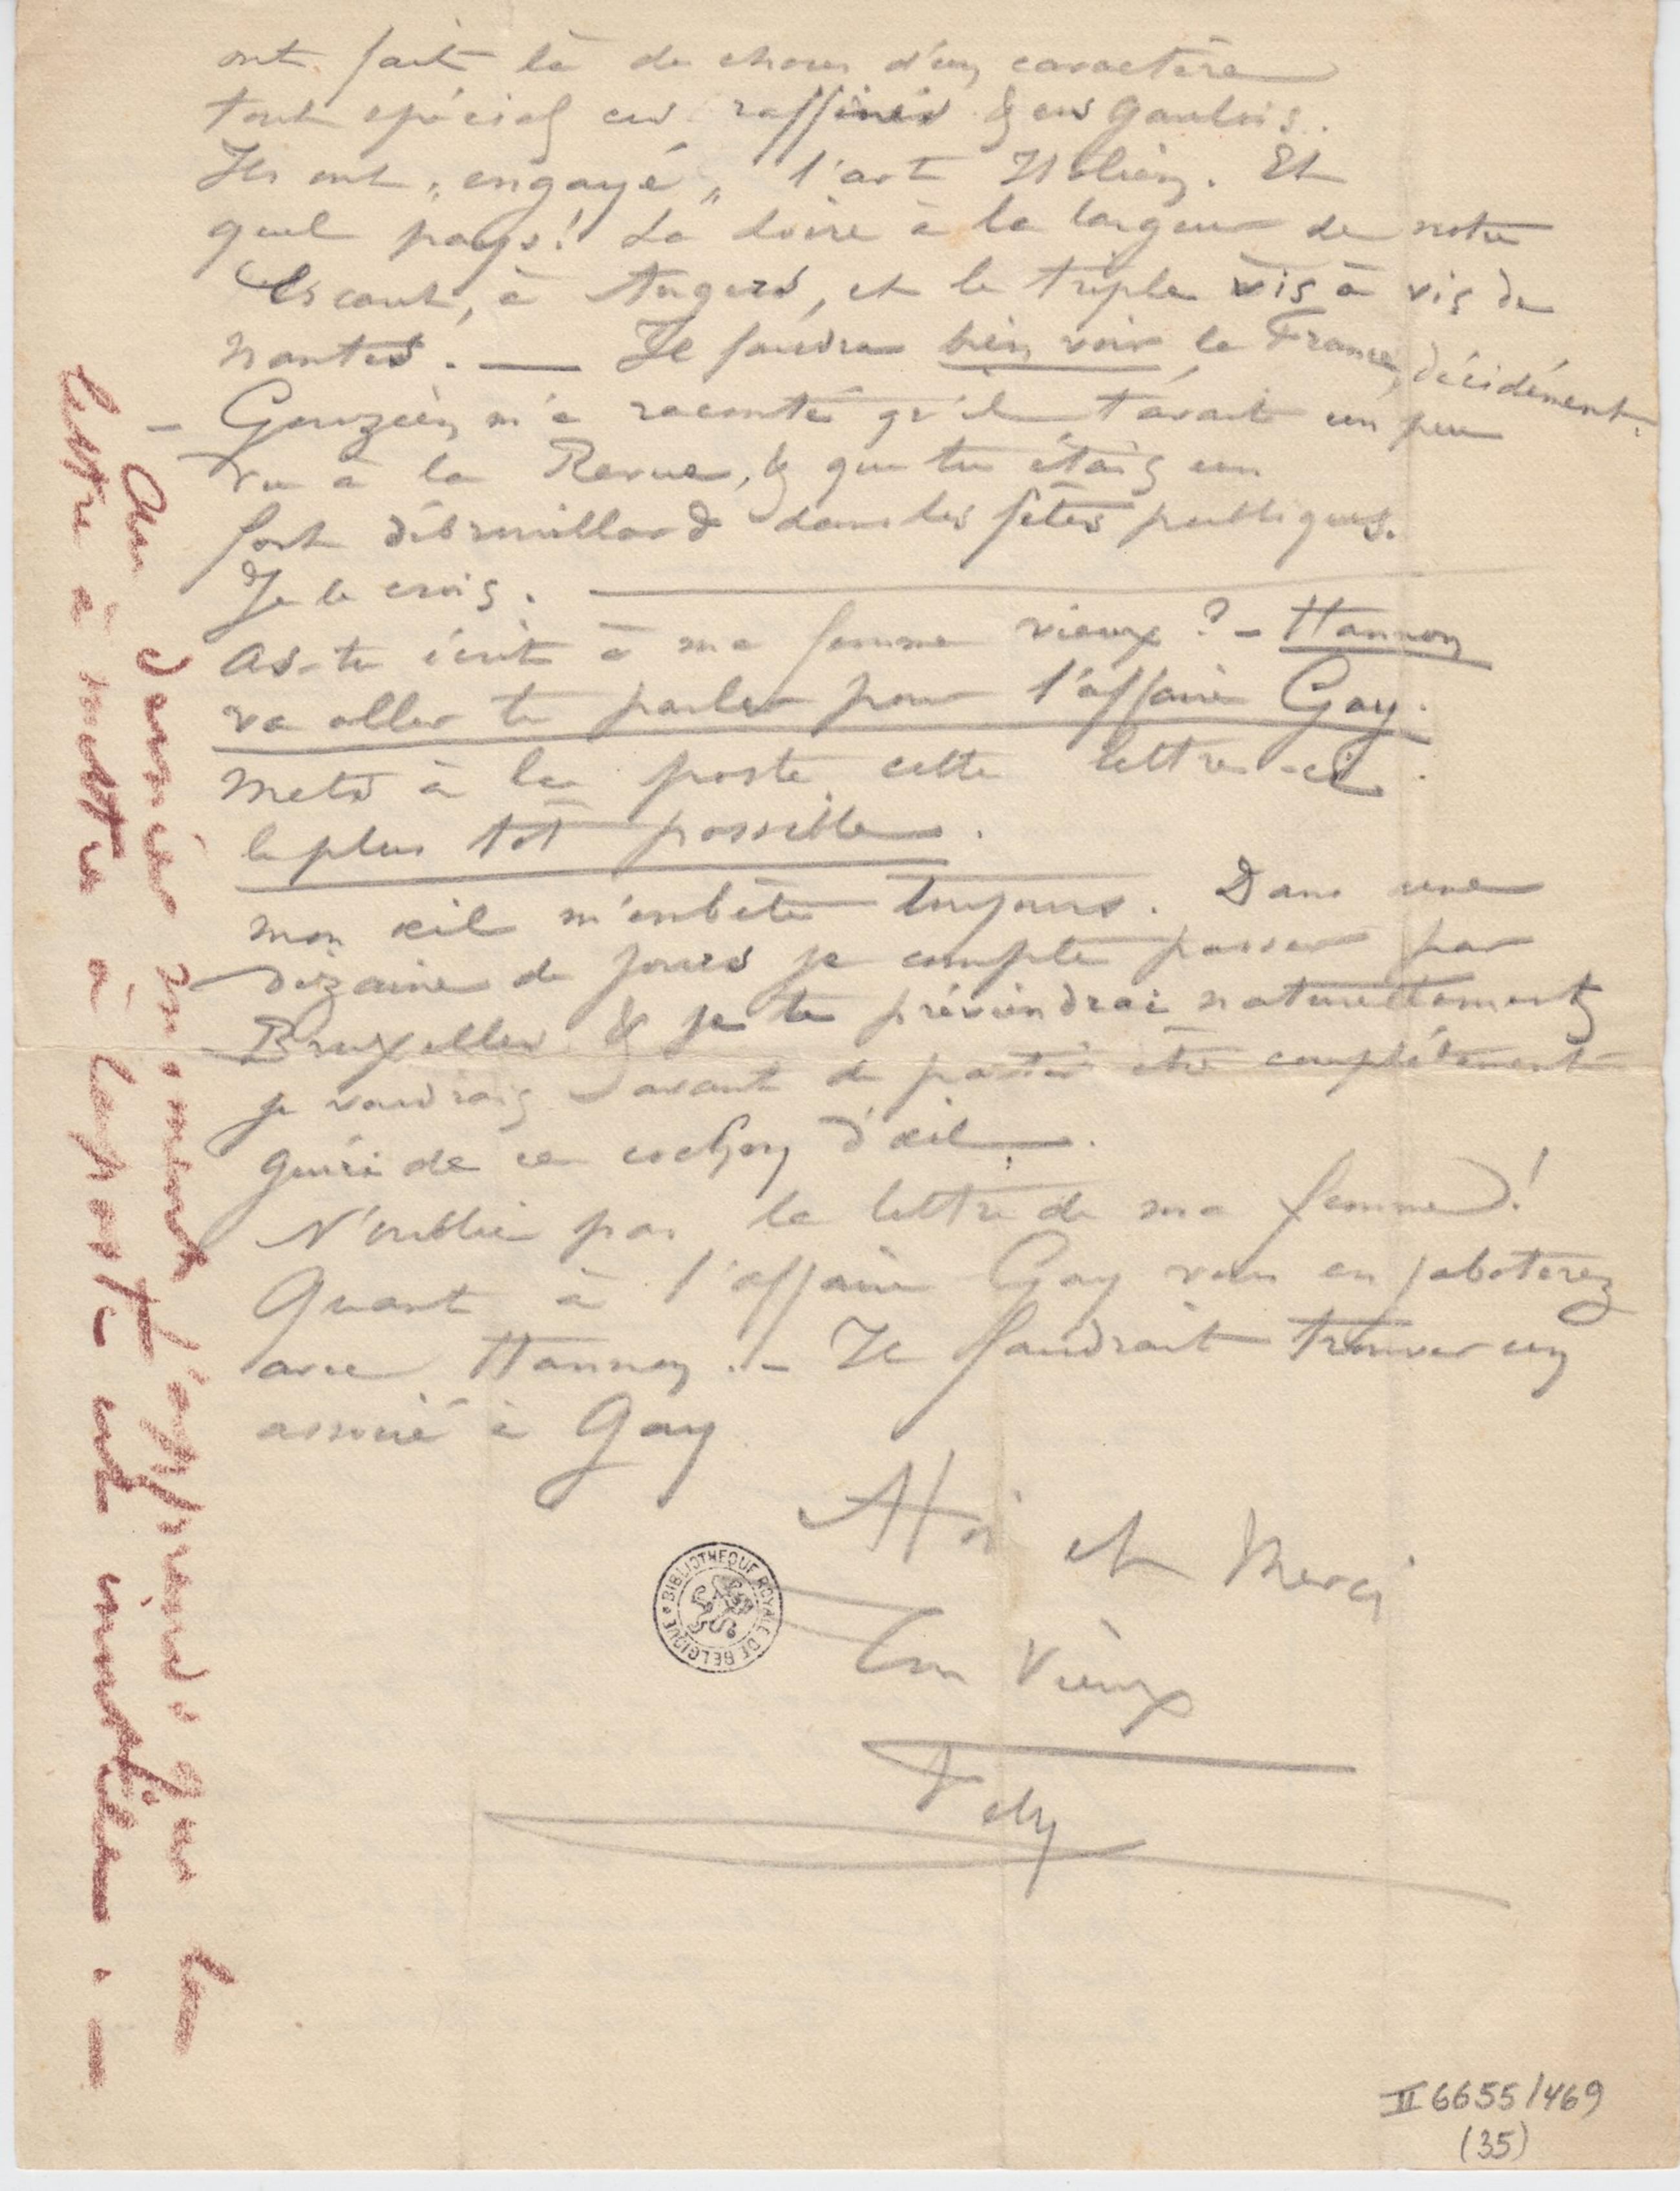 ont fait là des choses d'un caractère
tout spécial ces raffinés & ces Gaulois.
Ils ont „engayé„ l'art Italien. Et
quel pays! La Loire à la largeur de notre
Escaut, à Angers, et le triple vis à vis de
Nantes. — Il faudra bien voir la France, décidément.
– Gouzien m'a raconté qu'il t'avait un peu
vu à la Revue, & que tu étais un
fort débrouillard dans les fêtes publiques.
Je le crois. —
As-tu écrit à ma femme vieux? – Hannon
va aller te parler pour l'affaire Gay.
Mets à la poste cette lettre-ci
le plus tôt possible.
Mon œil m'embête toujours. Dans une
dizaine de jours je compte passer par
Bruxelles & je te préviendrai naturellement
je voudrais avant de partir être complétement
guéri de ce cochon d'œil.
N'oublie pas la lettre de ma femme!
Quant à l'affaire Gay vous en jaboterez
avec Hannon. – Il faudrait trouver un
associé à Gay
A toi et Merci
Ton Vieux
Fély
BIBLIOTHEQUE ROYALE DE BELGIQUE
Au dernier moment j'apprends que la
lettre à mettre à la poste est inutile. –
II 6655/469
(35)